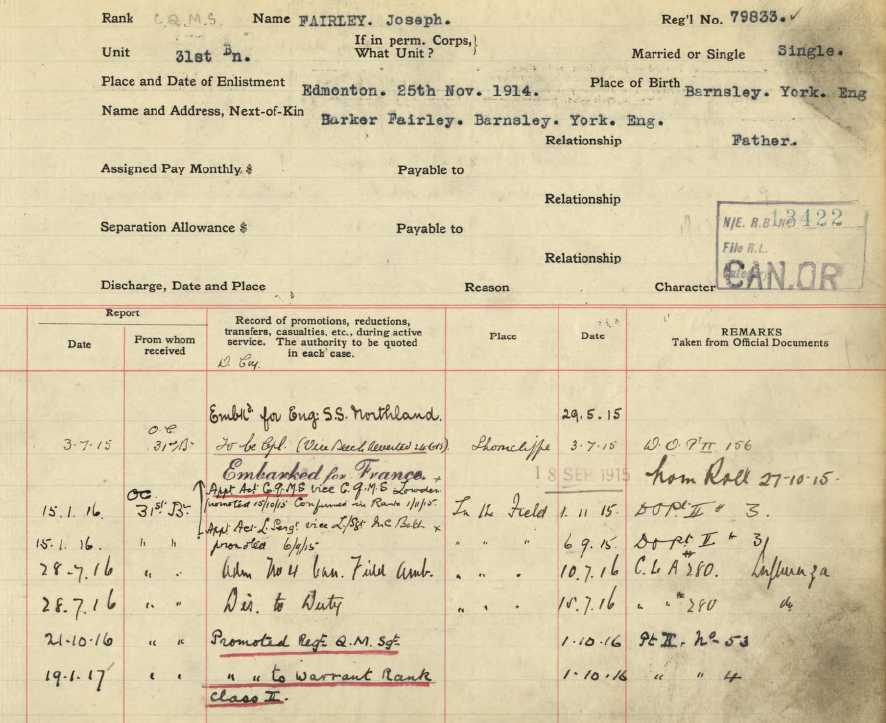 Rank C.Q.M.S. Name FAIRLEY. Joseph. Reg'l No. 79833.
Unit 31st Bn. If in perm. Corps, What Unit? Married or Single Single.
Place and Date of Enlistment Edmonton. 25th Nov. 1914. Place of Birth Barnsley. York. Eng
Name and Address, Next-of-Kin Barker Fairley. Barnsley. York. Eng.
Relationship Father.
Assigned Pay Monthly $ Payable to
Relationship
Separation Allowance $ Payable to
Relationship
N/E. R.B. No 13422
File R.L.
CAN.OR
Discharge, Date and Place Reason Character
Report
Date From whom received Record of promotions, reductions, transfers, casualties, etc., during active service. The authority to be quoted in each case. Place Date REMARKS Taken from Official Documents
D. Coy.
Embk'd for Eng: S.S. Northland. 29.5.15
O.C
3-7-15 31st B. To be Cpl. (Vice Beech reverted Shorncliffe 3-7-15 D.O. Pt II 156
Embarked for France. 18 SEP 1915 Nom Roll 27-10-15.
Appt Act C.Q.M.S vice C.Q.M.S Lowden
OC promoted 15/10/15 Confirmed in Rank 1/11/15.
15.1.16. 31st Bn In the Field 1.11 15. DO Pt II # 3.
Appt Act. L. Sergt. vice L/Sgt
15.1.16. " " promoted 6/9/15 " " " 6 9.15. DO Pt II # 3
28-7.16 " " Adm No 4 Can. Field Amb. " " " 10.7.16 C.L A # 280. Influenza
28.7.16 " " Dis. to Duty " " " 15.7.16 " " # 280 do
21-10-16 " " Promoted Regt. Q.M. Sgt. 1-10-16 Pt II. No 53
19-1-17 " " " " to Warrant Rank 1-10-16 " " 4
Class II.